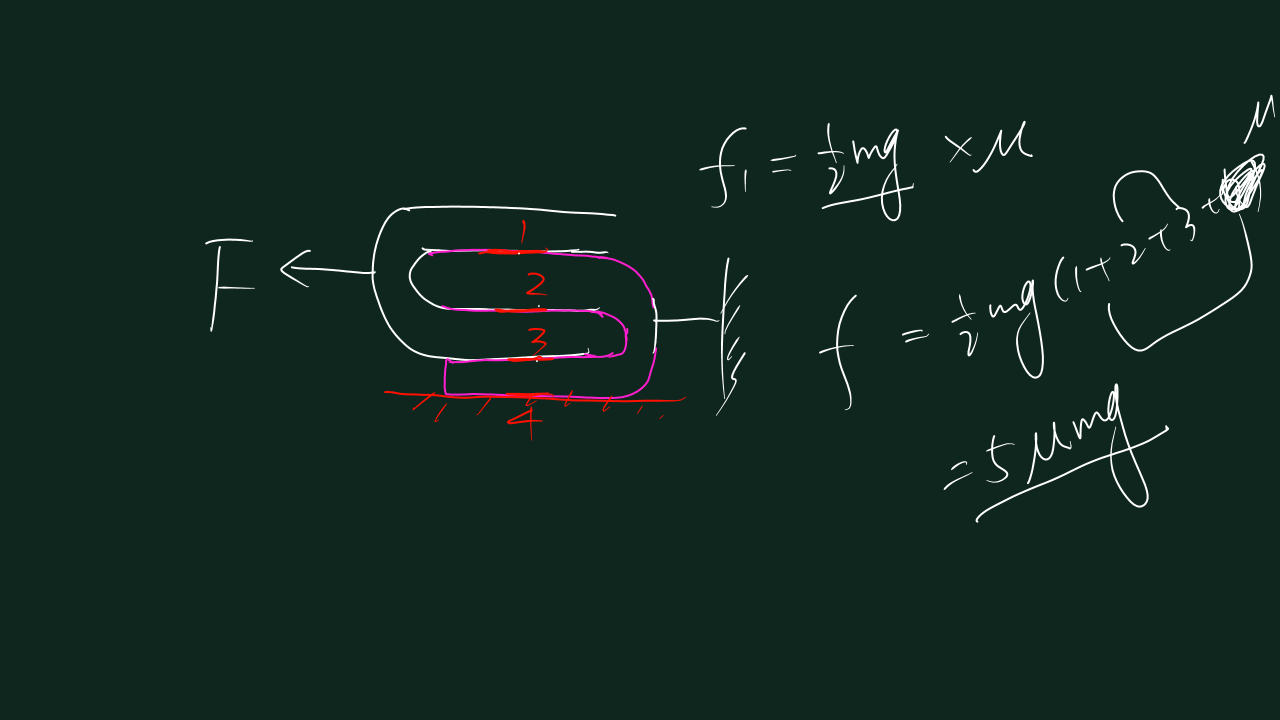 F
1
2
3
4
f₁ = ½mg × μ
f = ½mg (1+2+3+
μ
= 5μmg